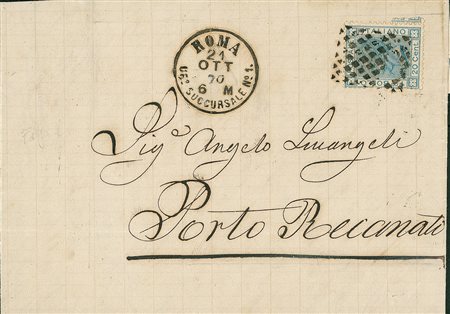 ROMA
21
OTT
70
6 M
UFº SUCCURSALE Nº 1.
ITALIANO
20 CENT
Sigº Angelo
Porto Recanati